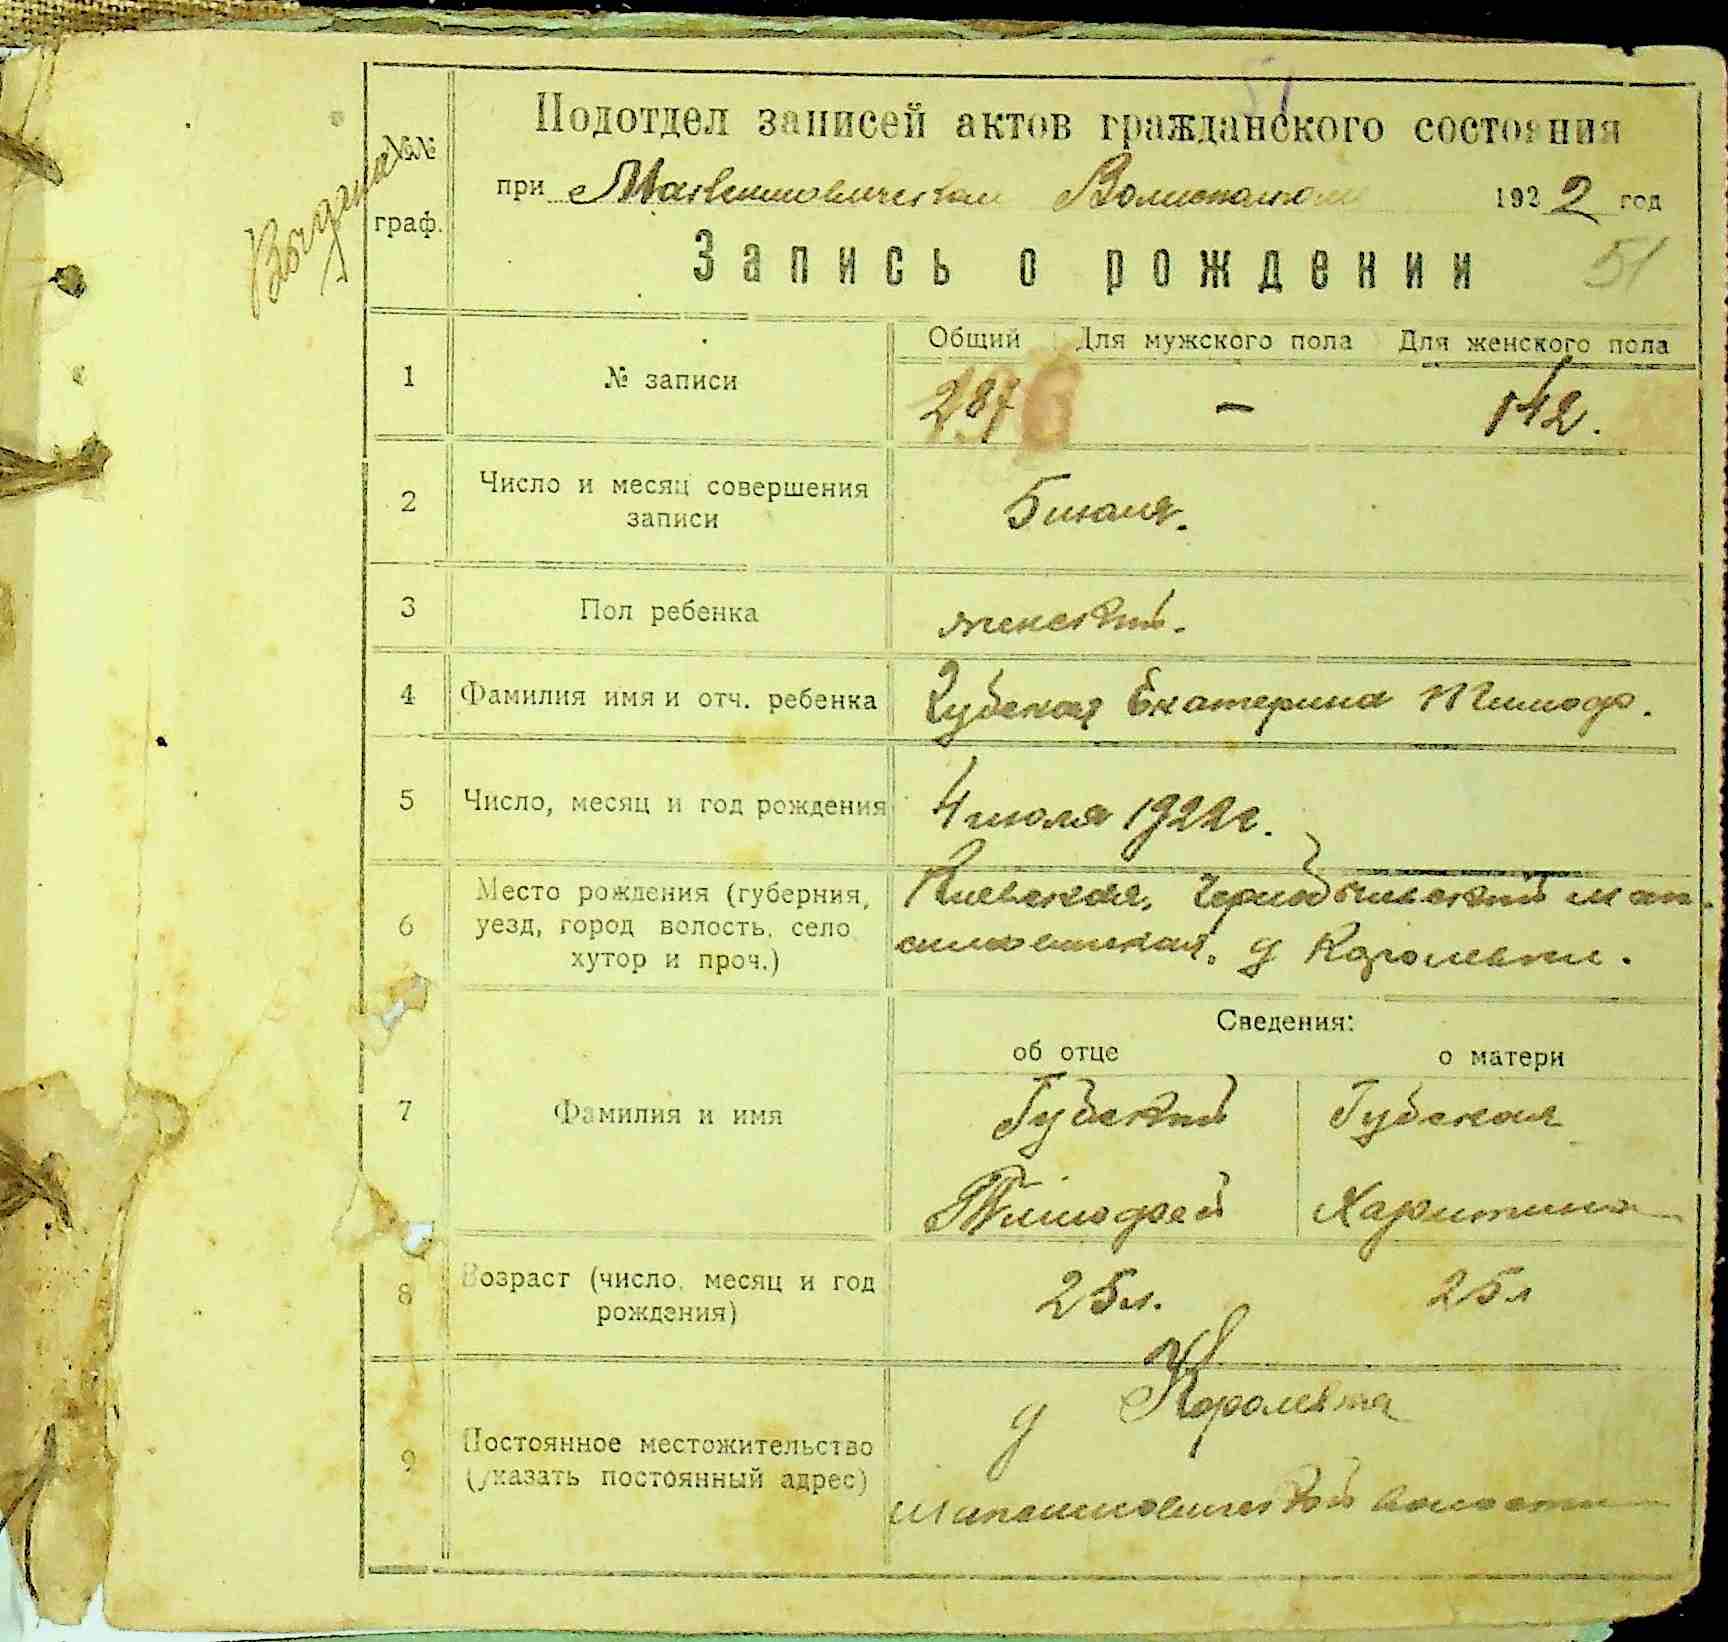 Выдана
№№ граф.
Подотдел записей актов гражданского состояния
при Волисполкоме 1922 год
Запись о рождении 51
Общий Для мужского пола Для женского пола
1 № записи 287 — 142.
2 Число и месяц совершения записи 5 июля.
3 Пол ребенка женский.
4 Фамилия имя и отч. ребенка Губская Екатерина Тимоф.
5 Число, месяц и год рождения 4 июля 1922 г.
6 Место рождения (губерния, уезд, город волость, село хутор и проч.) Киевская, Чернобыльский
д Королевки.
Сведения:
об отце о матери
7 Фамилия и имя Губский Губская
Тимофей Харитина
8 Возраст (число, месяц и год рождения) 25 л. 25 л
9 Постоянное местожительство (указать постоянный адрес) д Королевка
волости